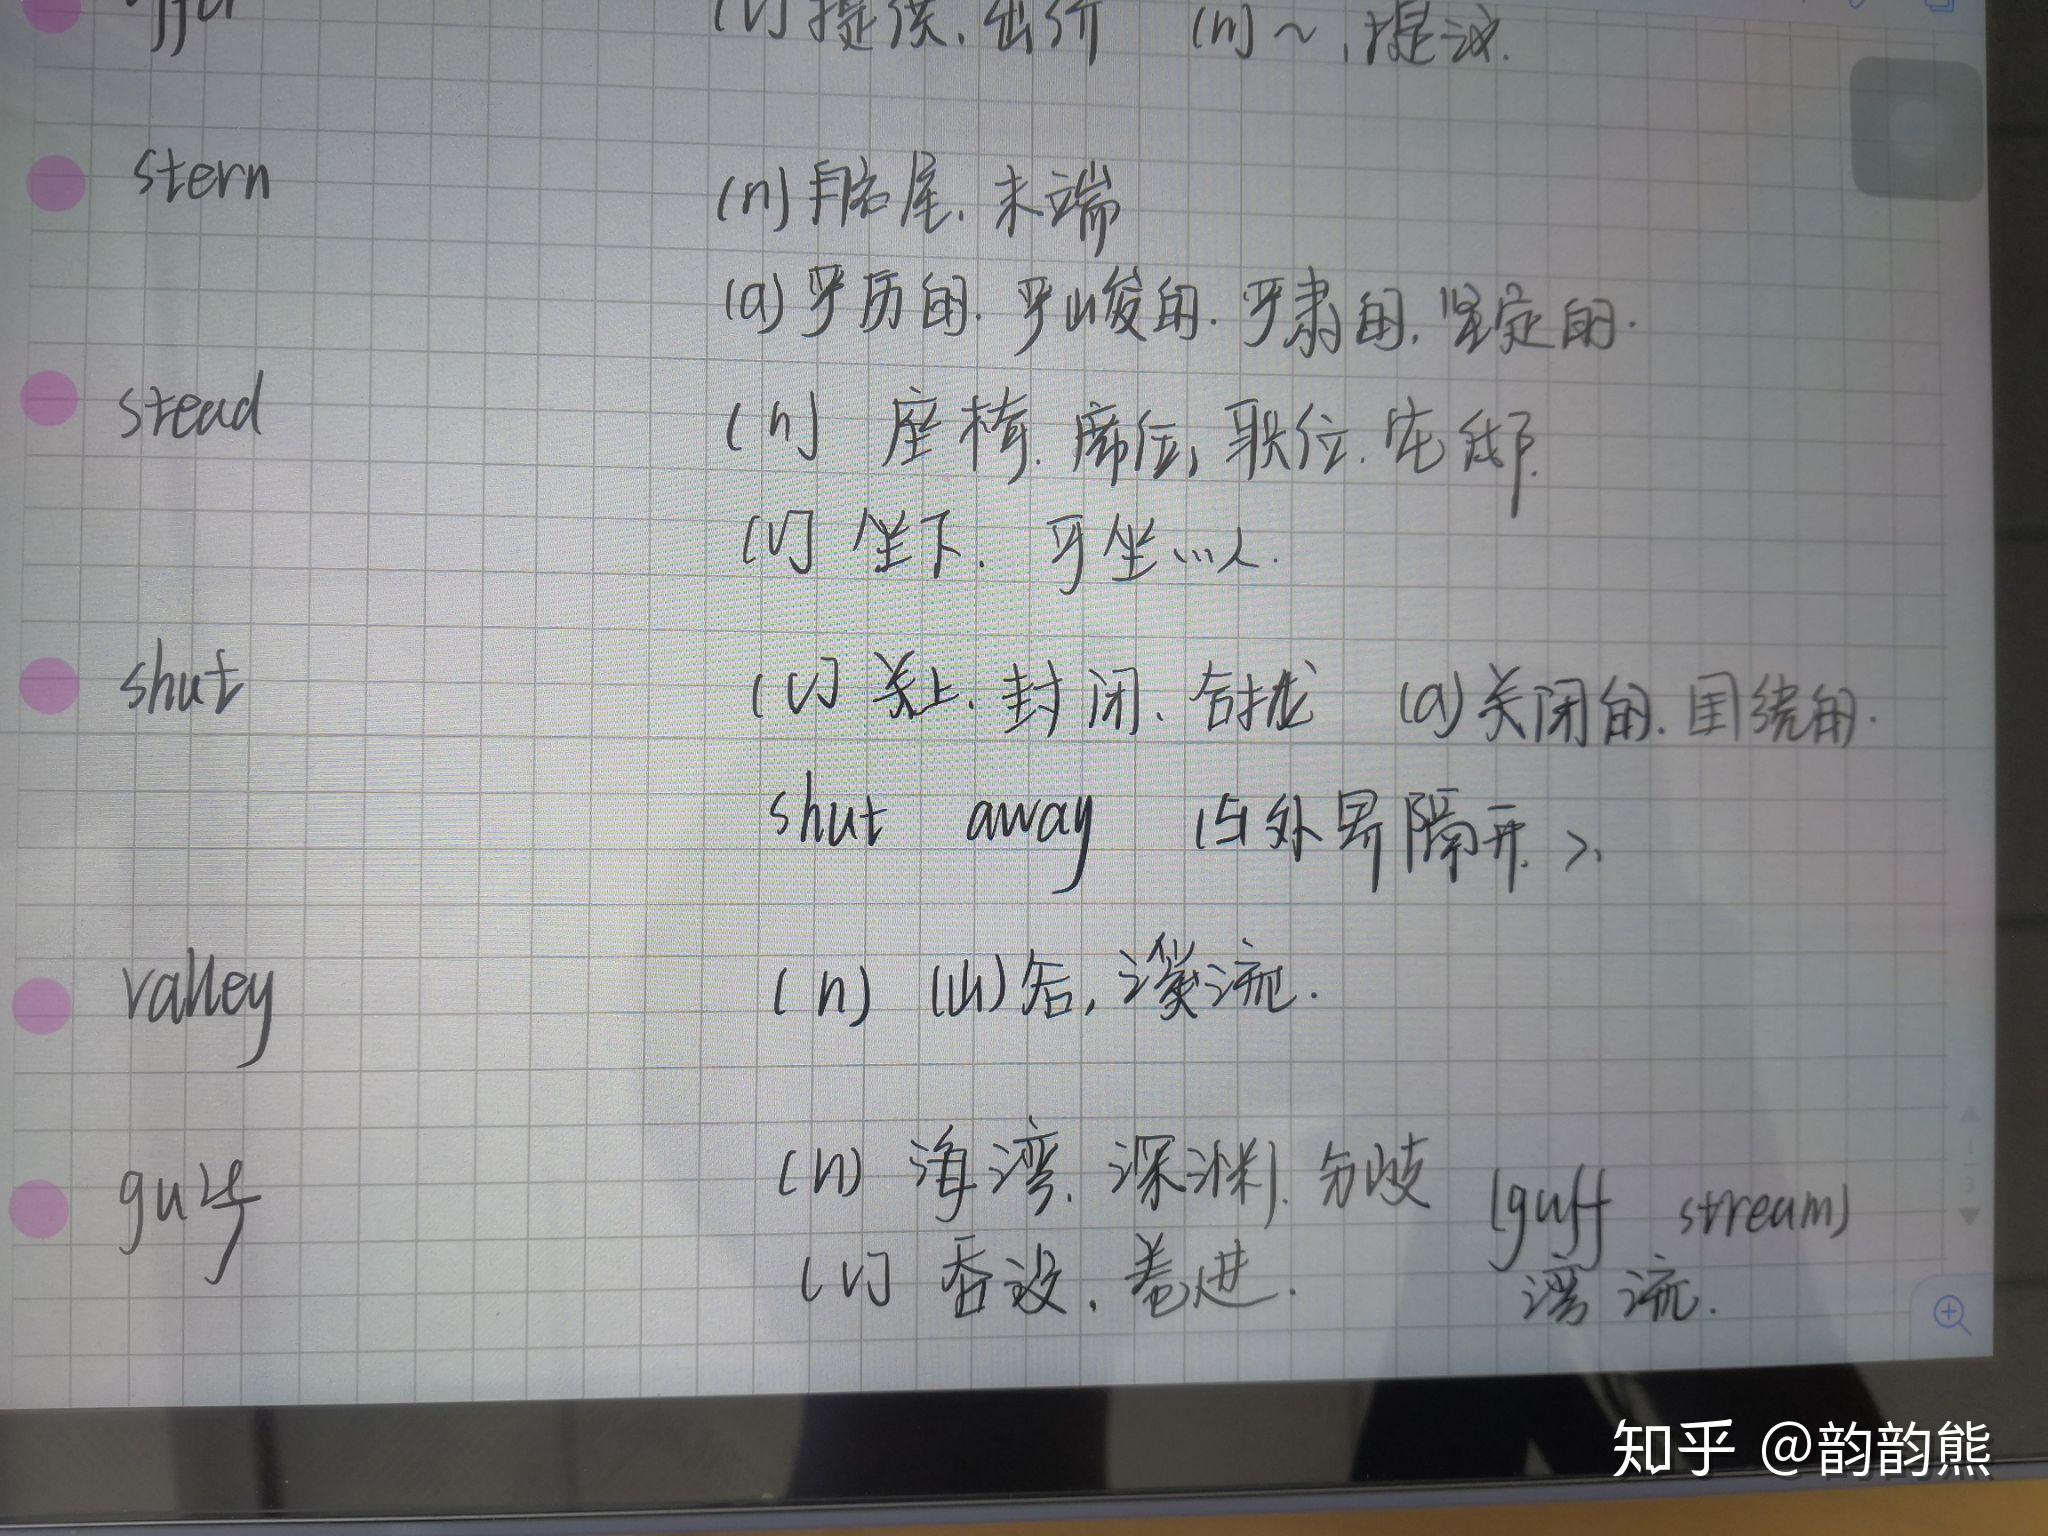 offer (v) 提供. 出价 (n) ~, 提议.
stern (n) 船尾. 末端
(a) 严厉的. 严峻的. 严肃的. 坚定的.
stead (n) 座椅. 席位, 职位. 宅邸.
(v) 坐下. 可坐…人.
shut (v) 关上. 封闭. 合拢 (a) 关闭的. 围绕的.
shut away (与外界隔开).
valley (n) (山)谷, 溪流.
gulf (n) 海湾. 深渊. 分歧 (gulf stream)
(v) 吞没. 卷进. 湾流.
知乎 @韵韵熊